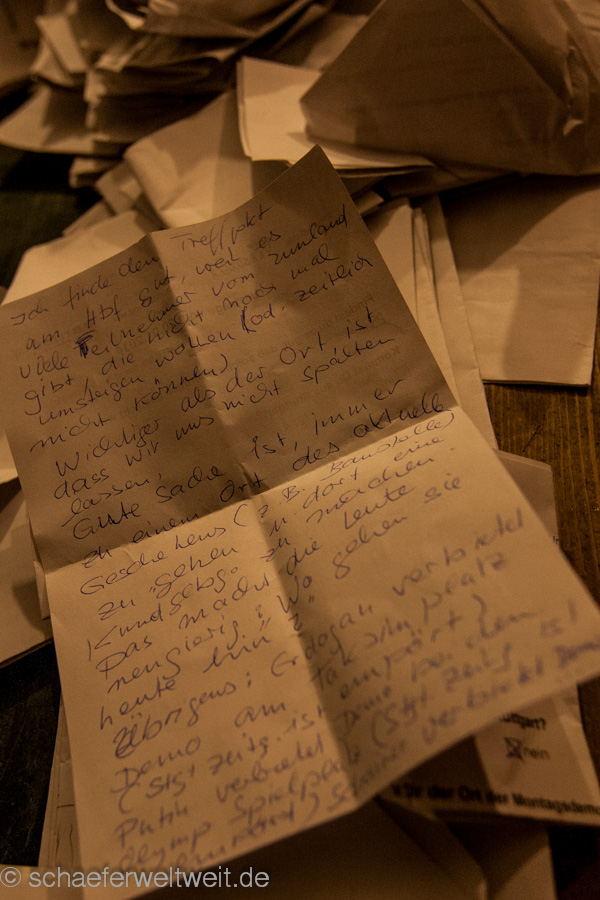 Ich finde den Treffpkt
am Hbf gut, weil es
viele Teilnehmer vom Umland
gibt die nicht noch mal
umsteigen wollen (od. zeitlich
nicht können)
Wichtiger als der Ort ist
dass wir uns nicht spalten
lassen,
Gute Sache ist, immer
zu einem Ort des aktuelle
Geschehens (z. B. Baustelle)
zu "gehen" u. dort eine
Kundgebg. zu machen.
Das macht die Leute
neugierig: "Wo gehen sie
heute hin?"
Übrigens: Erdogan verbietet
Demo am Taksimplatz
(Stgt zeitg. ist empört)
Putin verbietet Demo bei den
Olymp Spielplätze (Stgt zeitg ist
verbietet Demo
ungen?
nein
r der Ort der Montagsdemo
© schaeferweltweit.de